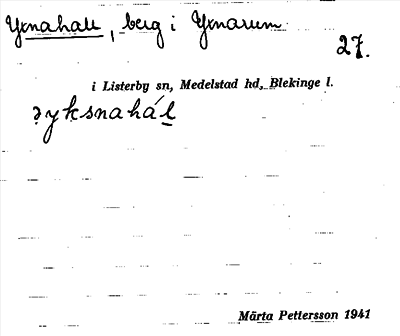 Yxnahall, berg i Yxnarum
27.
i Listerby sn, Medelstad hd, Blekinge l.
ə̣yksnahál
Märta Pettersson 1941